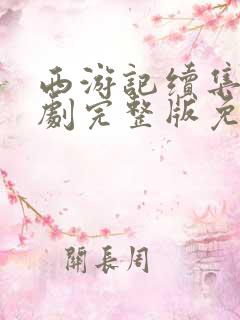 西游記续集
劇完整版免
關長周